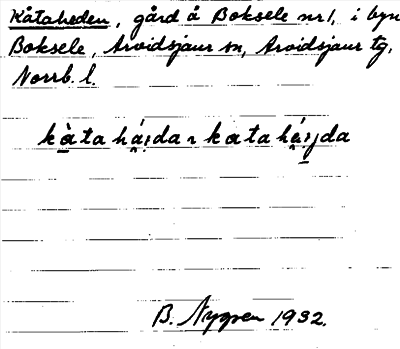 Kåtaheden, gård å Boksele nr 1, i byn
Boksele, Arvidsjaur sn, Arvidsjaur tg,
Norrb. l.
kàta háida ~ kata háijda
B. Nygren 1932.